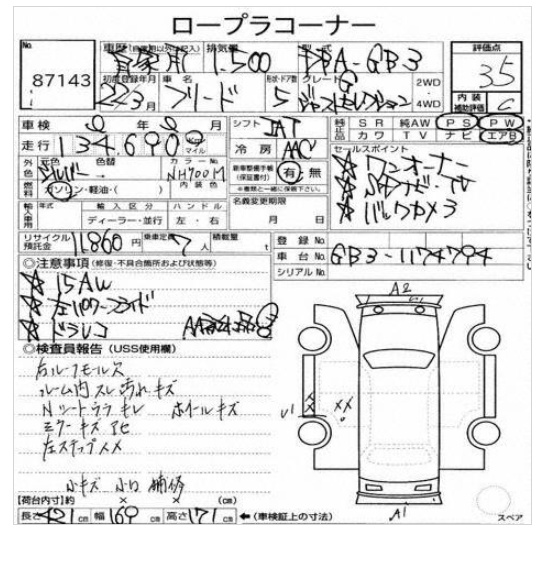 ロープラコーナー
No. 87143
車歴 (自家用以外は記入) 自家用
排気量 1.500
型式 DBA-GB3
評価点 3.5
初度登録年月 22 3月
車名 フリード
形状・ドア数 5
グレード G ジャストセレクション
2WD
4WD
内装補助評価 C
車検 年 月
シフト IAT
純正品 SR 純AW PS PW
カワ TV ナビ エアB
走行 134.690 Km マイル
冷房 AAC
セールスポイント
☆ ワンオーナー
☆ SDナビ・TV
☆ バックカメラ
外色 元色 シルバー 色替 →
カラーNo. NH700M
燃料 ガソリン・軽油・( )
内装色
新車整備手帳(保証書付) 有・無
※書類と一緒に保管下さい。
輸入車用 年式 輸入区分 ハンドル
ディーラー・並行 左・右
名義変更期限
月 日
リサイクル預託金 11,860 円
乗車定員 7人
積載量 t
登録No.
車台No. GB3-1174794
シリアルNo.
◎注意事項 (修復・不具合箇所および状態等)
☆ 15AW
☆ 左パワースライド
☆ ドラレコ
◎検査員報告 (USS使用欄)
右ルーフモール欠
ルーム内スレ汚れキズ
Nシートウラキレ ホイールキズ
ミラーキズ
左ステップスメ
小キズ 小凹 補修
A2
U1
XX
A1
【荷台内寸】約 × × (cm)
長さ 421 cm 幅 169 cm 高さ 171 cm ←(車検証上の寸法)
スペア